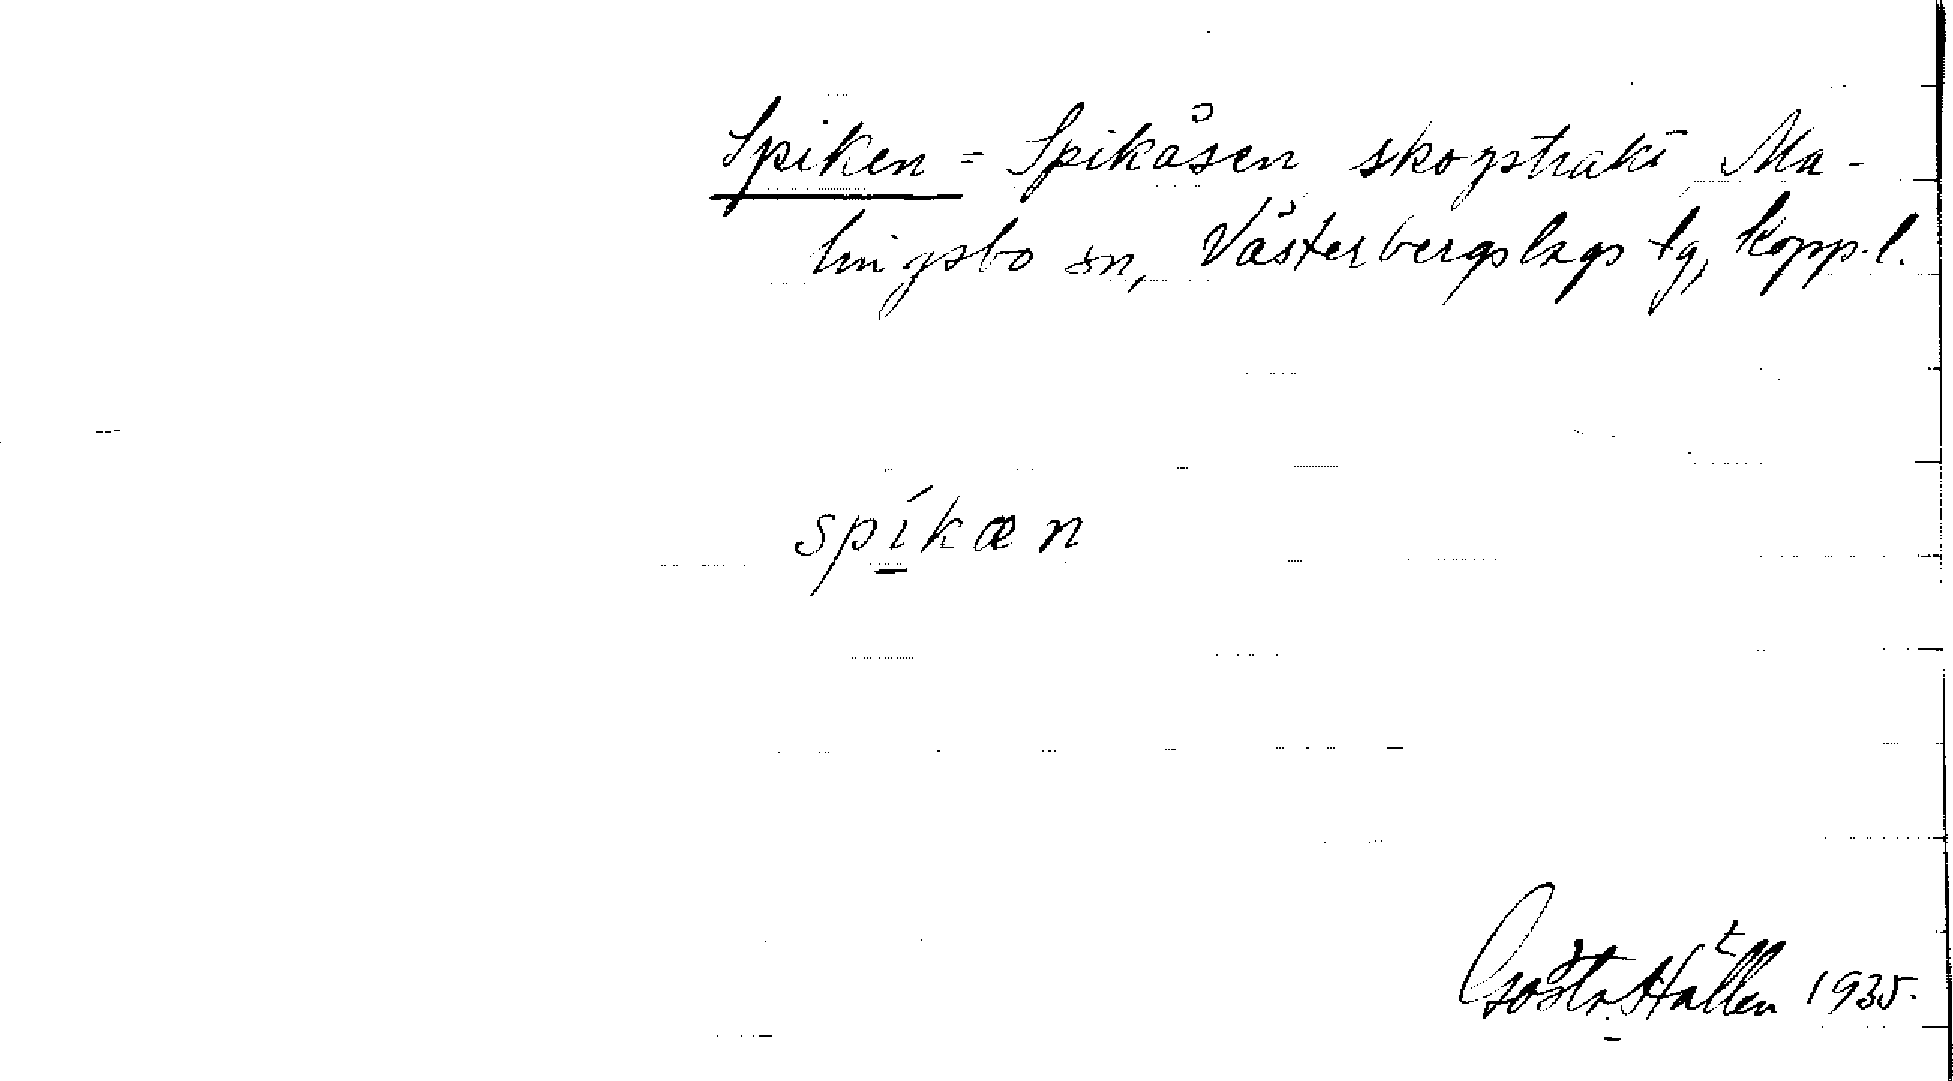 Spiken = Spikåsen skogstrakt Ma-
lingsbo sn, Västerbergslags tg, Kopp. l.
spíkæn
Gösta Hallén 1935.